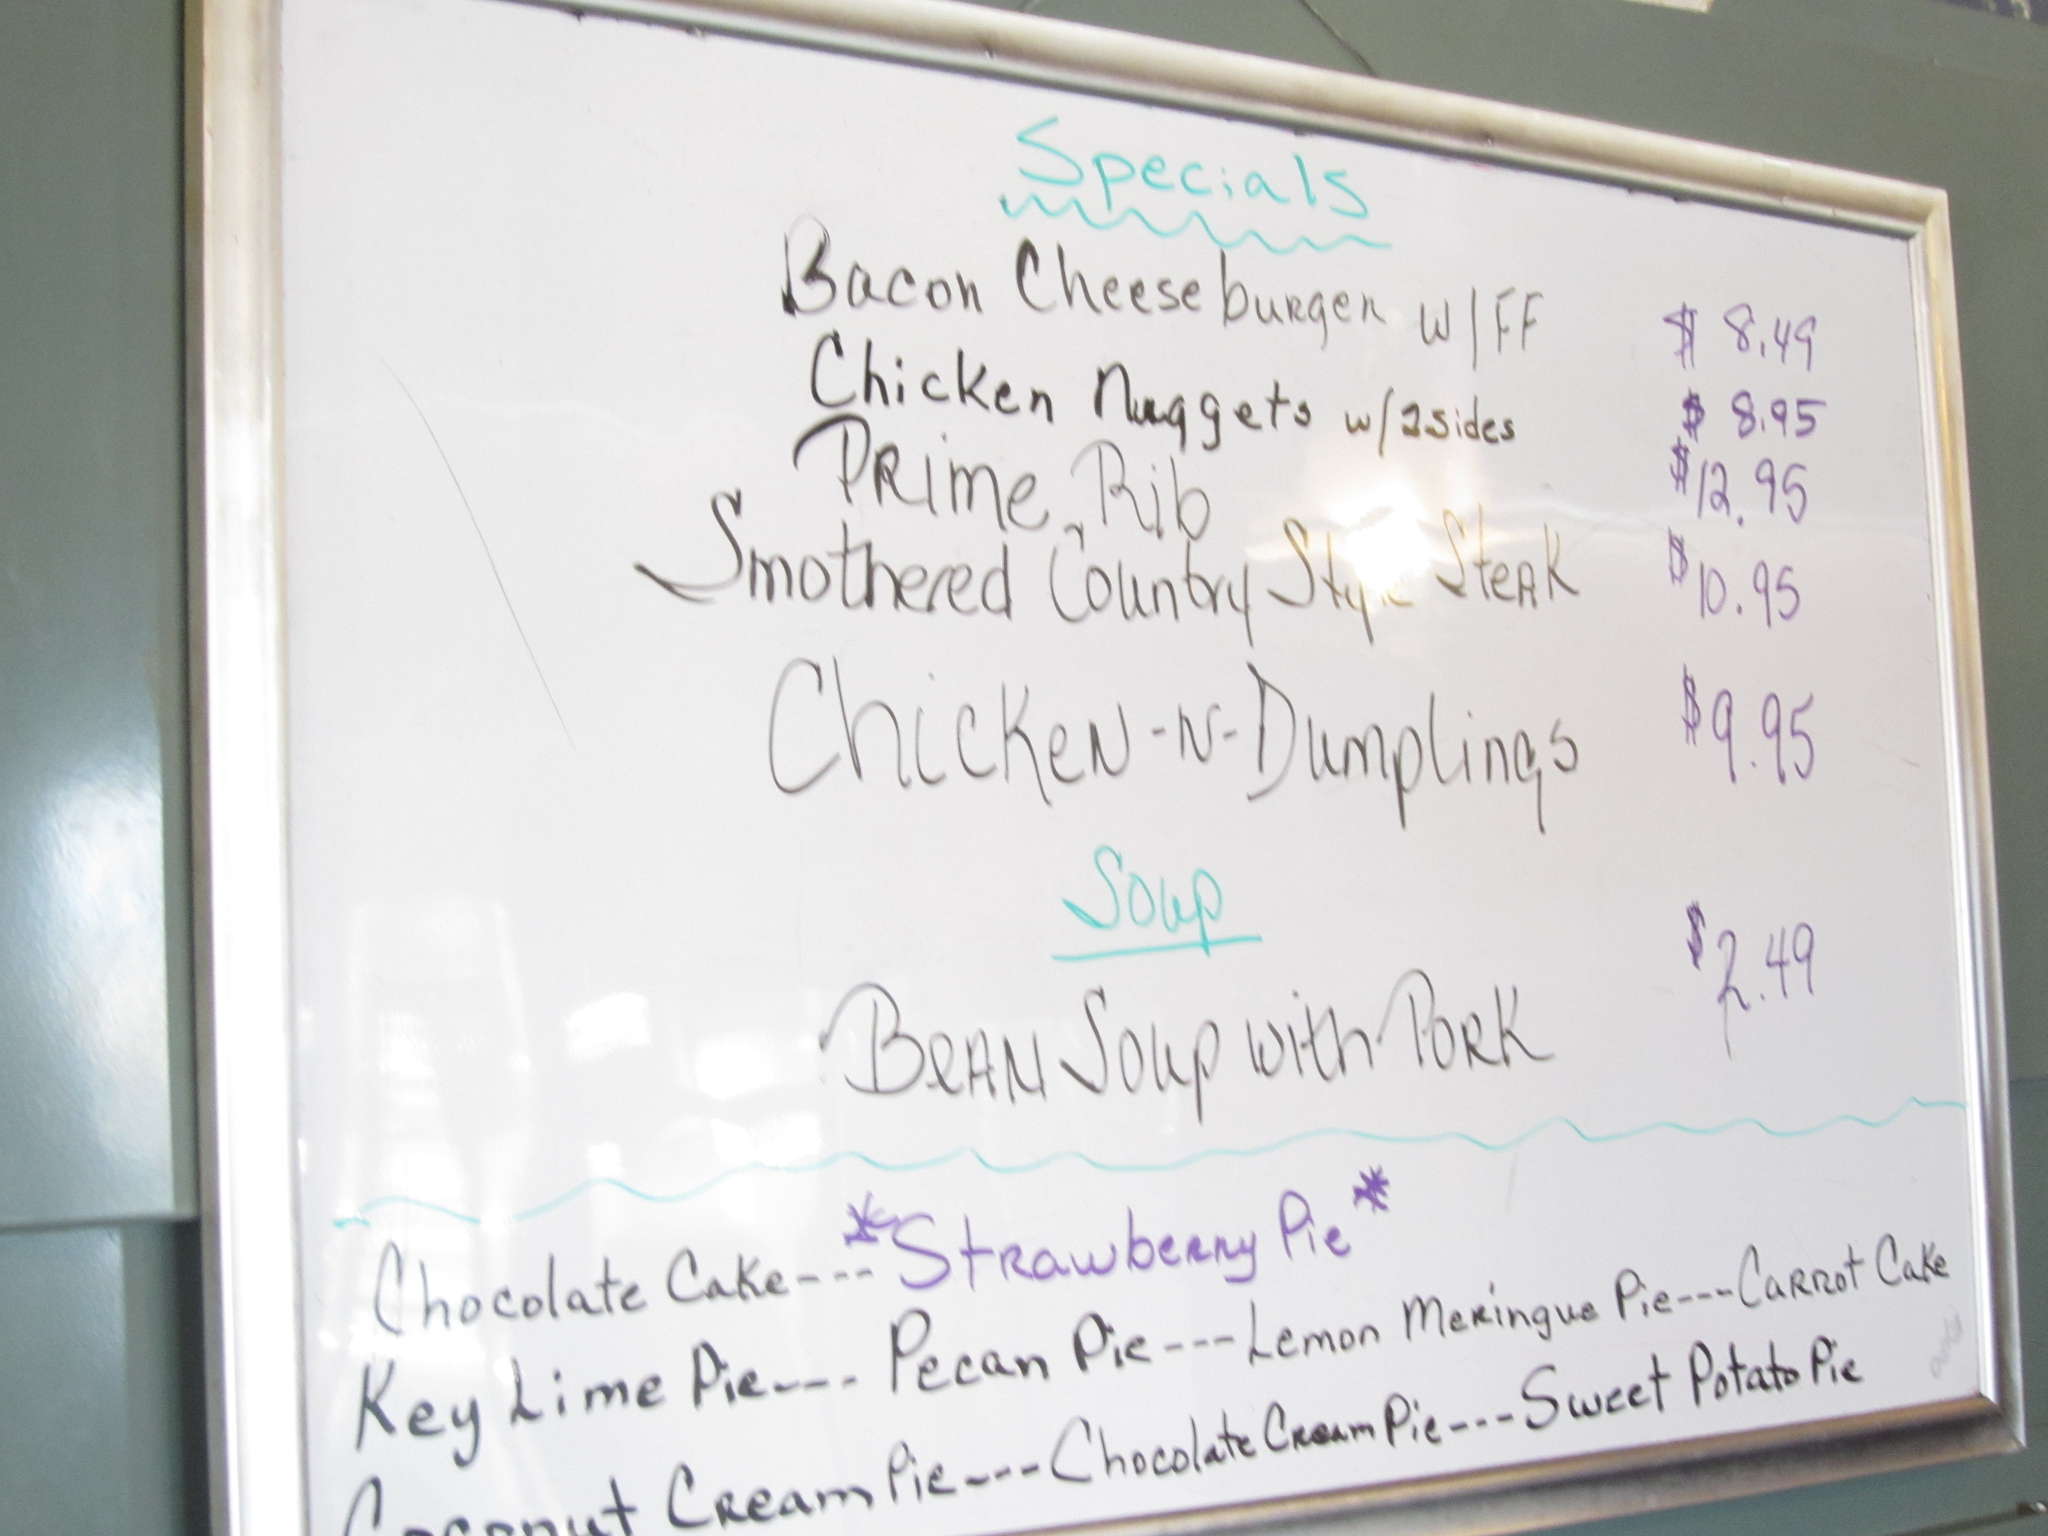 Specials
Bacon Cheeseburger w/FF $8.49
Chicken Nuggets w/2sides $8.95
Prime Rib $12.95
Smothered Country Style Steak $10.95
Chicken-N-Dumplings $9.95
Soup
Bean Soup with Pork $2.49
Chocolate Cake--- *Strawberry Pie*
Key Lime Pie--- Pecan Pie---Lemon Meringue Pie---Carrot Cake
Coconut Cream Pie---Chocolate Cream Pie---Sweet Potato Pie